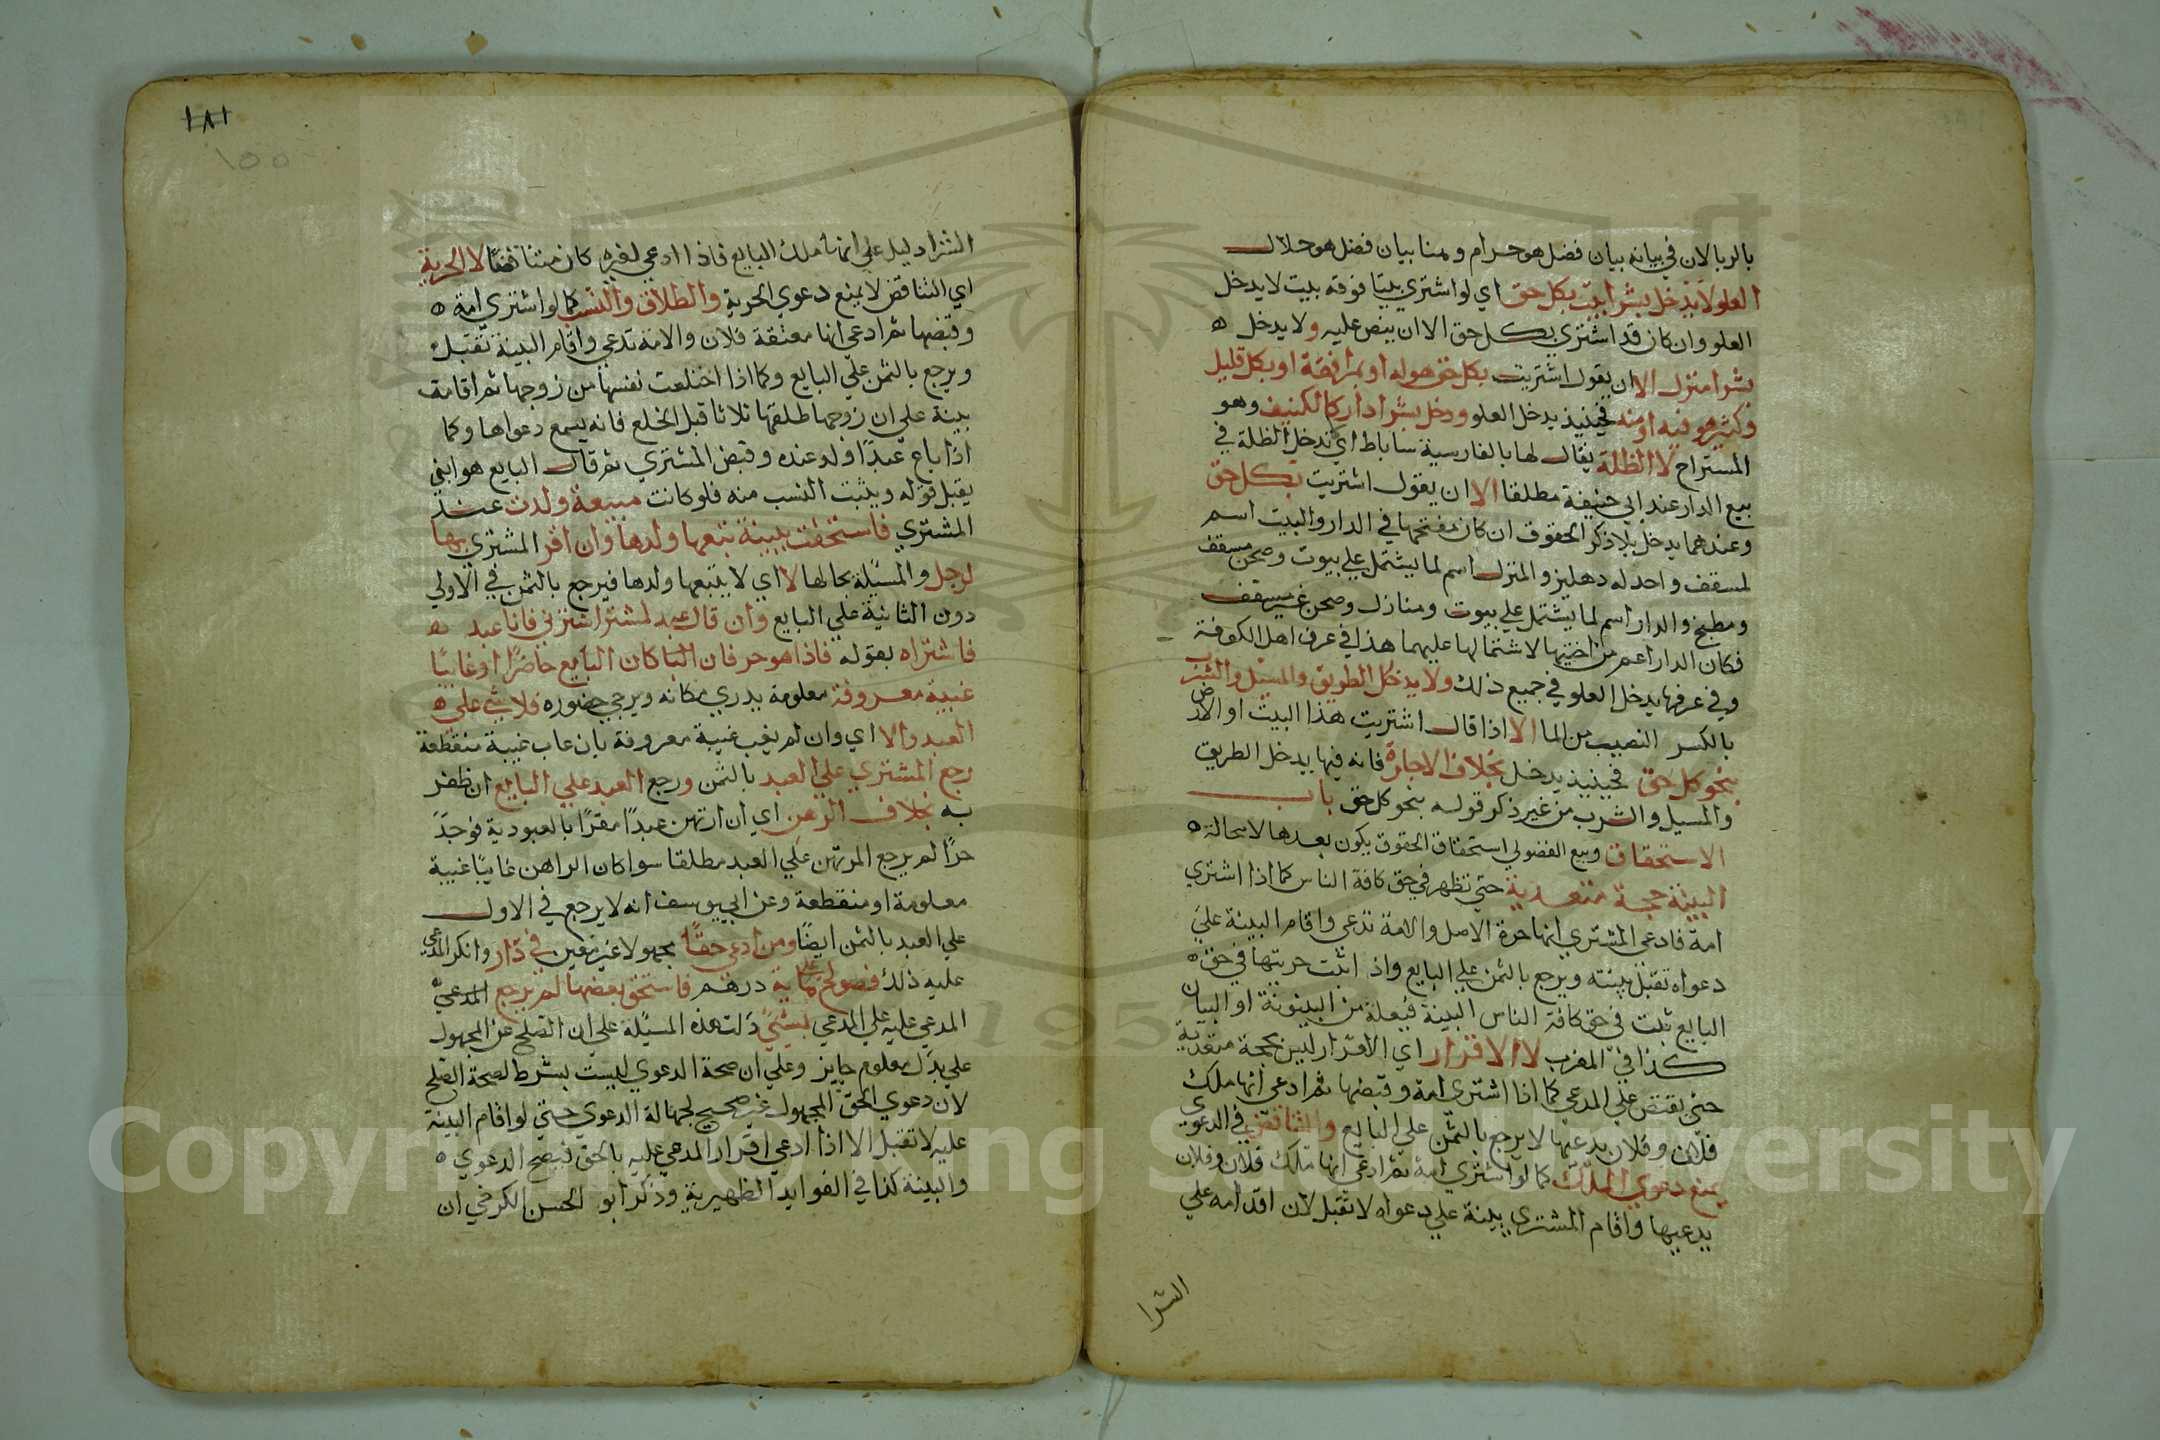 بالربا لان في بيانه بيان فضل هو حرام وهنا بيان فضل هو حلال
العلو لا يدخل بشرا بيت بكل حق اي لو اشتري بيتا فوقه بيت لا يدخل
العلو وان كان قد اشتري بكل حق الا ان ينص عليه ولا يدخل ه
بشرا منزل الا ان يقول اشتريت بكل حق هو له او بمرافقه او بكل قليل
وكثير هو فيه او منه فحينيذ يدخل العلو ودخل بشرا دار كالكنيف وهو
المستراح لا الظلة يقال لها بالفارسية ساباط اي لا تدخل الظلة في
بيع الدار عند ابي حنيفة مطلقا الا ان يقول اشتريت بكل حق
وعندهما يدخل بلا ذكر الحقوق ان كان مفتحها في الدار والبيت اسم
لمسقف واحد له دهليز والمنزل اسم لما يشتمل علي بيوت وصحن مسقف
ومطبخ والدار اسم لما يشتمل علي بيوت ومنازل وصحن غير مسقف
فكان الدار اعم من اختيها لاشتمالها عليهما هذا في عرف اهل الكوفة
وفي عرفنا يدخل العلو في جميع ذلك ولا يدخل الطريق والمسيل والشرب
بالكسر النصيب من الما الا اذا قال اشتريت هذا البيت او الارض
بنحو كل حق فحينيذ يدخل بخلاف الاجارة فانه فيها يدخل الطريق
والمسيل والشرب من غير ذكر قوله بنحو كل حق باب
الاستحقاق وبيع الفضولي استحقاق الحقوق يكون بعدها لا محالة ه
البينة حجة متعدية حتي تظهر في حق كافة الناس كما اذا اشتري
امة فادعي المشتري انها حرة الاصل والامة تدعي واقام البينة علي
دعواه تقبل بينته ويرجع بالثمن علي البايع واذ اثبت حريتها في حق ه
البايع ثبت في حق كافة الناس البينة فيعلة من البينونة او البيان
كذا في المغرب لا الاقرار اي الاقرار ليس بحجة متعدية
حتي يقتصر علي المدعي كما اذا اشتري امة وقبضها ثم ادعي انها ملك
فلان وفلان يدعيها لا يرجع بالثمن علي البايع والتناقض في الدعوي
يمنع دعوي الملك كما لو اشتري امة ثم ادعي انها ملك فلان وفلان
يدعيها واقام المشتري بينة علي دعواه لا تقبل لان اقدامه علي
الشرا
١٨١
١٥٥
الشرا دليل علي انها ملك البايع فاذا ادعي لغيره كان متناقضا لا الحرية
اي التناقض لا يمنع دعوي الحرية والطلاق والنسب كما لو اشتري امة ه
وقبضها ثم ادعي انها معتقة فلان والامة تدعي واقام البينة تقبل
ويرجع بالثمن علي البايع وكما اذا اختلعت نفسها من زوجها ثم اقامت
بينة علي ان زوجها طلقها ثلاثا قبل الخلع فانه يسمع دعواها وكما
اذا باع عبدا ولد عنده وقبض المشتري ثم قال البايع هو ابني
يقبل قوله ويثبت النسب منه فلو كانت مبيعة ولدت عند
المشتري فاستحقت ببينة تبعها ولدها وان اقر المشتري بها
لرجل والمسيلة بحالها لا اي لا يتبعها ولدها فيرجع بالثمن في الاولي
دون الثانية علي البايع وان قال عبد لمشتر اشترني فانا عبد ه
فاشتراه بقوله فاذا هو حر فان البا كان البايع حاضرا او غايبا
غيبة معروفة معلومة يدري مكانه ويرجي حضوره فلا شي علي ه
العبد والا اي وان لم يغب غيبة معروفة بان غاب غيبة منقطعة
رجع المشتري علي العبد بالثمن ورجع العبد علي البايع ان ظفر
به بخلاف الرهن اي ان ارتهن عبدا مقرا بالعبودية فوجد
حرا لم يرجع المرتهن علي العبد مطلقا سوا كان الراهن غايبا غيبة
معلومة او منقطعة وعن ابي يوسف انه لا يرجع في الاول
علي العبد بالثمن ايضا ومن ادعي حقا مجهولا غير معين في دار وانكر المدعي
عليه ذلك فصولح علي ماية درهم فاستحق بعضها لم يرجع المدعي
المدعي عليه علي المدعي بشي دلت هذه المسيلة علي ان الصلح عن المجهول
علي بدل معلوم جايز وعلي ان صحة الدعوي ليست بشرط لصحة الصلح
لان دعوي الحق المجهول غير صحيح لجهالة الدعوي حتي لو اقام البينة
عليه لا تقبل الا اذا ادعي اقرار المدعي عليه بالحق فيصح الدعوي ه
والبينة كذا في الفوايد الظهيرية وذكر ابو الحسن الكرخي ان
Copyright © King Saud University